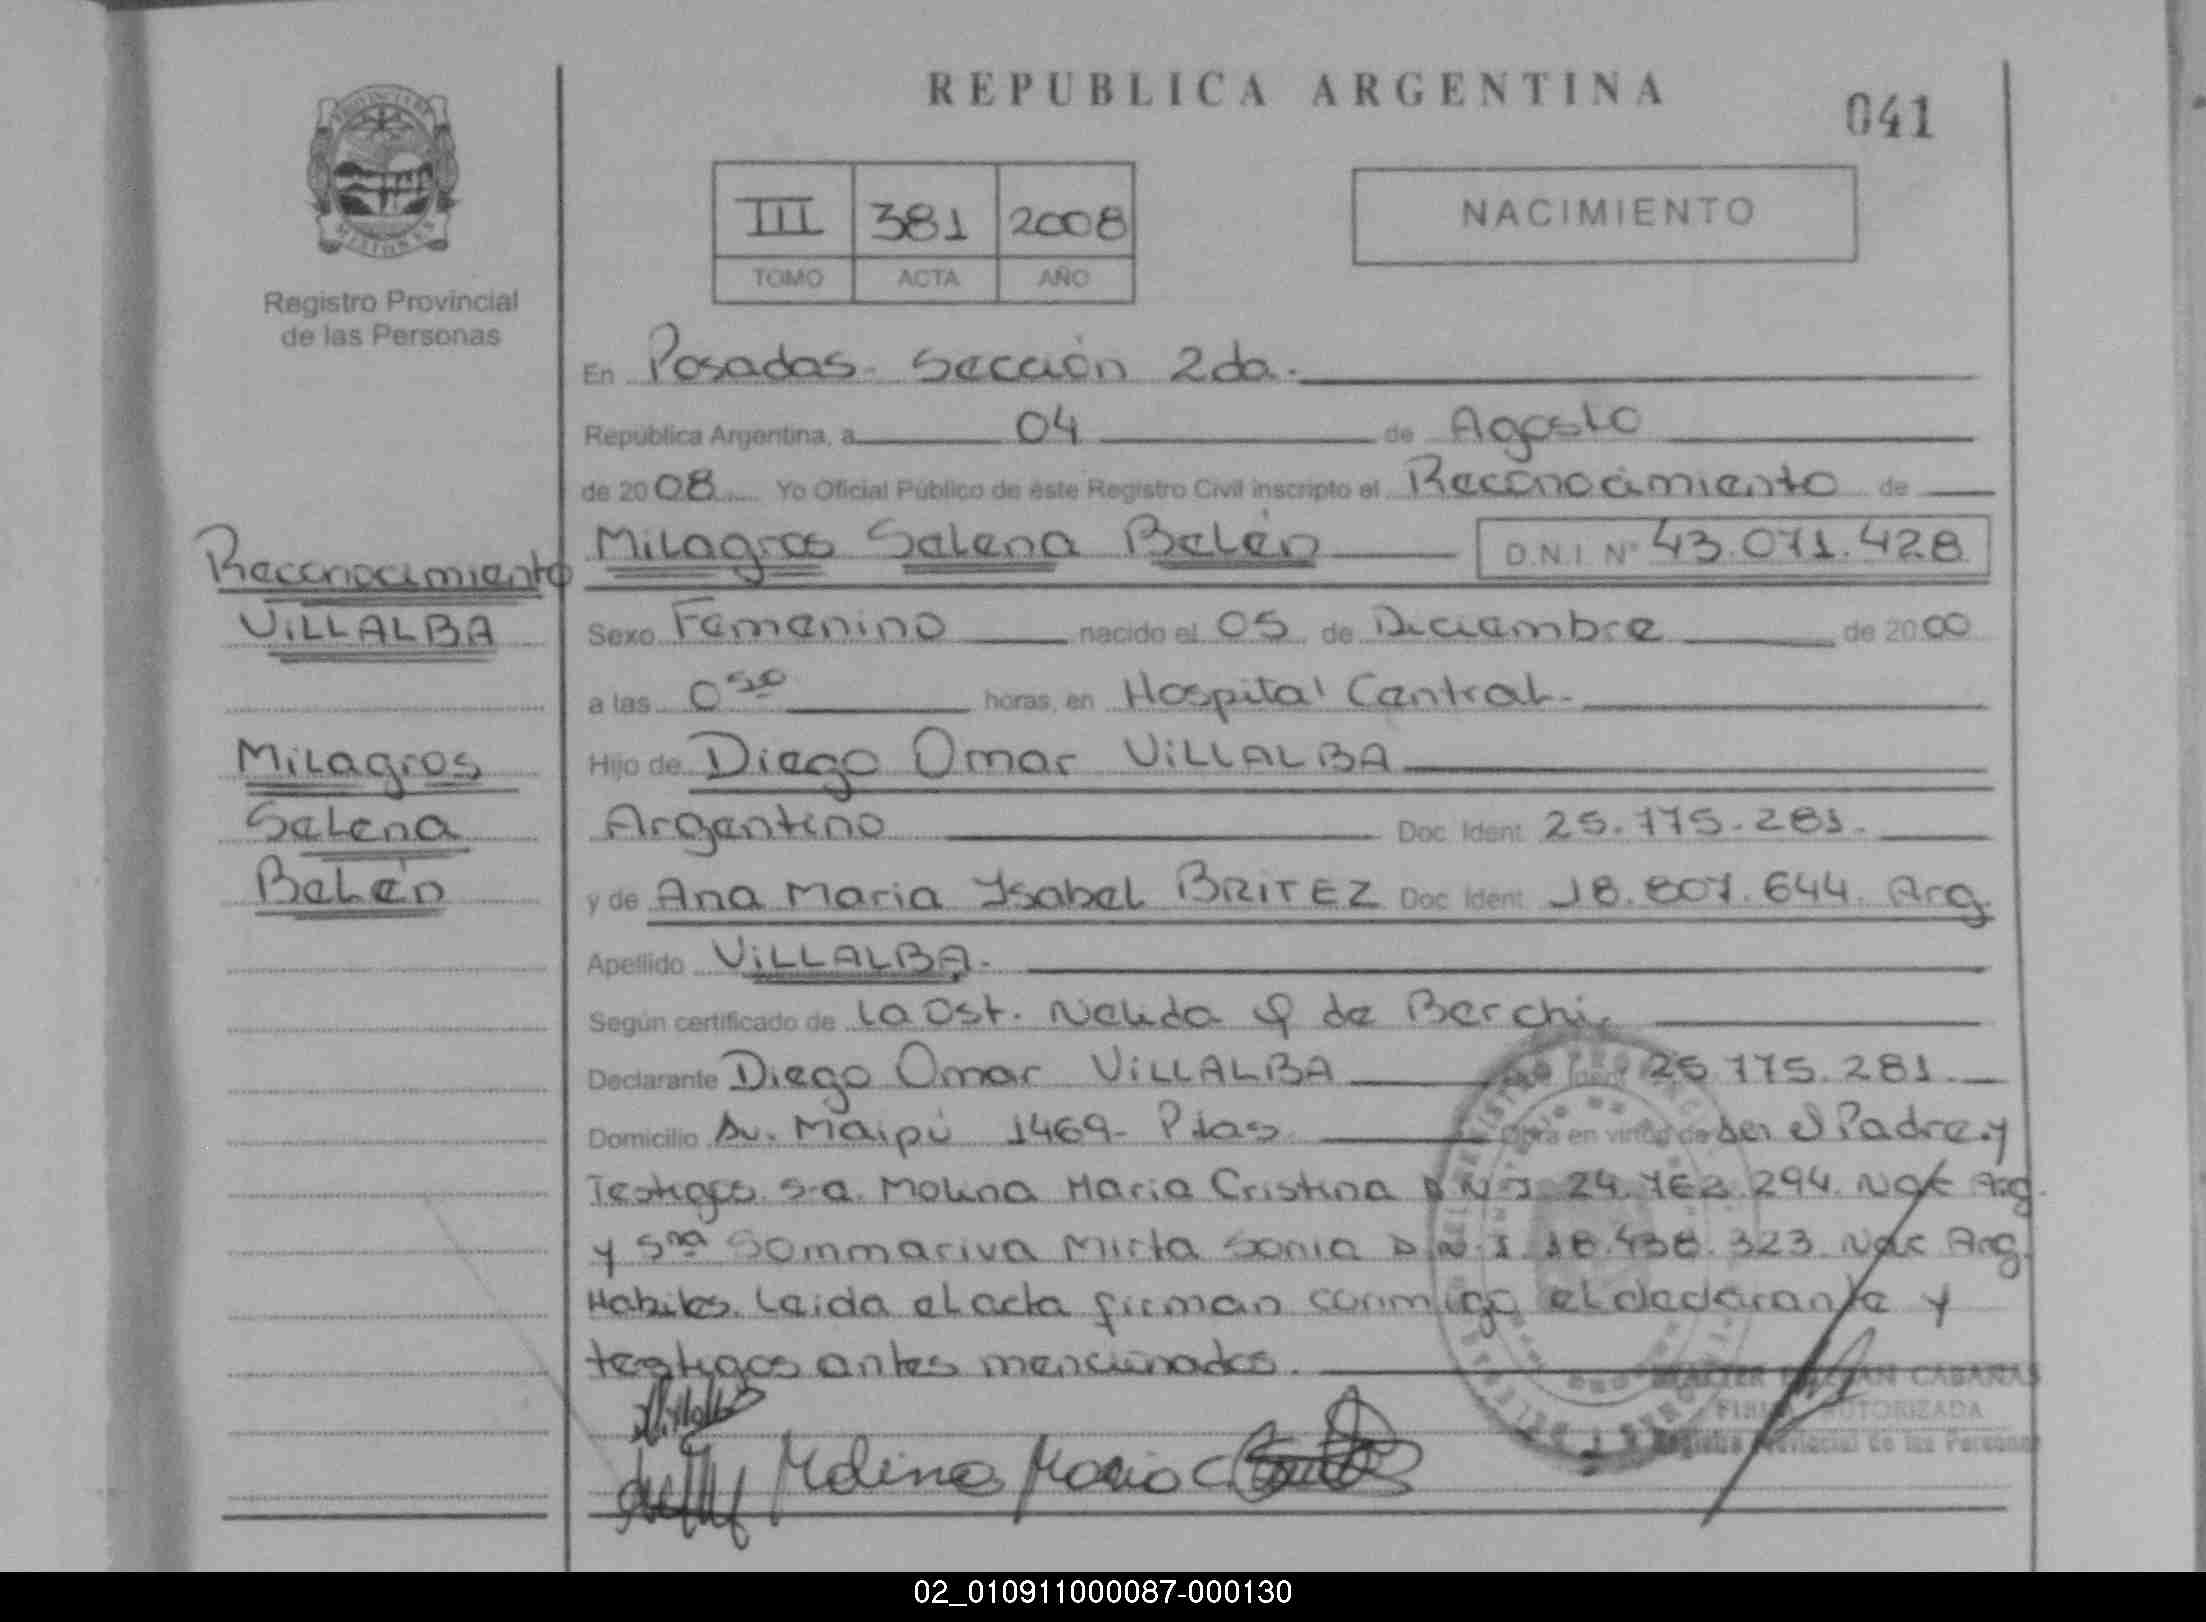 REPUBLICA ARGENTINA
041
III 381 2008
TOMO ACTA AÑO
NACIMIENTO
Registro Provincial
de las Personas
En Posadas. Sección 2da.
República Argentina, a 04 de Agosto
de 2008 Yo Oficial Público de éste Registro Civil inscripto el Reconocimiento de
Milagros Selena Belén D.N.I. Nº 43.071.428
Sexo Femenino nacido el 05 de Diciembre de 2000
a las 0 50 horas, en Hospital Central.
Hijo de Diego Omar VILLALBA
Argentino Doc. Ident. 25.775.281.
y de Ana Maria Ysabel BRITEZ Doc. Ident. 18.807.644. Arg.
Apellido VILLALBA.
Según certificado de la Ost. Nelida de Berchi
Declarante Diego Omar VILLALBA Ident 25.775.281.
Domicilio Av. Maipú 1469- Pdas Obra en virtud de ser el Padre y
Testigos Sra. Molina Maria Cristina D.N.I. 24.762.294. Nac Arg.
y Sra Sommariva Mirta Sonia D.N.I. 18.438.323 Nac Arg.
Habiles. Leida el acta firman conmigo el declarante y
testigos antes mencionados.
Reconocimiento
VILLALBA
Milagros
Selena
Belén
Molina Maria C
CABAÑAS
FIRMA AUTORIZADA
Registro Provincial de las Personas
02_010911000087-000130